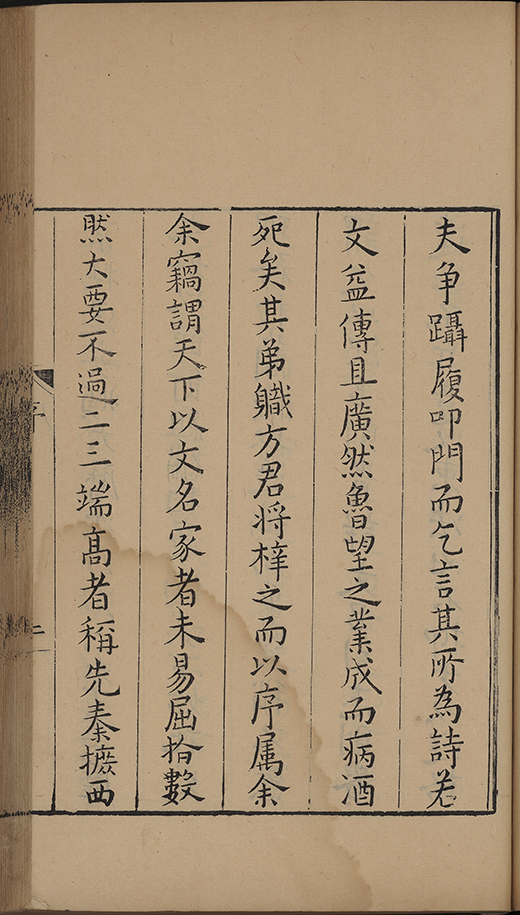 夫争躡履叩門而乞言其所為詩若
文益傳且廣然魯望之業成而病酒
死矣其弟職方君将梓之而以序属余
余竊謂天下以文名家者未易屈拾數
然大要不過二三端高者稱先秦摭西
序
二